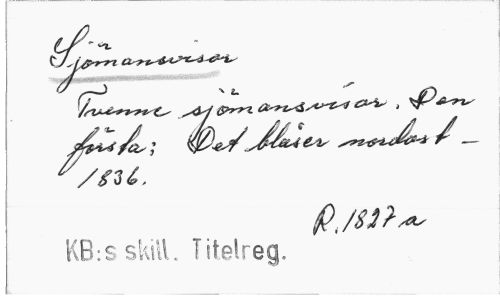 Sjömansvisor
Tvenne sjömansvisor. Den
första: Det blåser nordost –
1836.
R. 1827 a
KB:s skill. Titelreg.